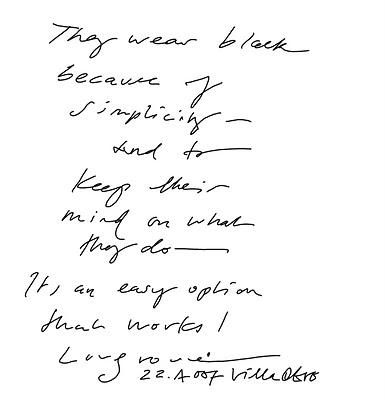 They wear black
because of
simplicity —
and to
keep their
mind on what
they do —
It, an easy option
that works!
22. A